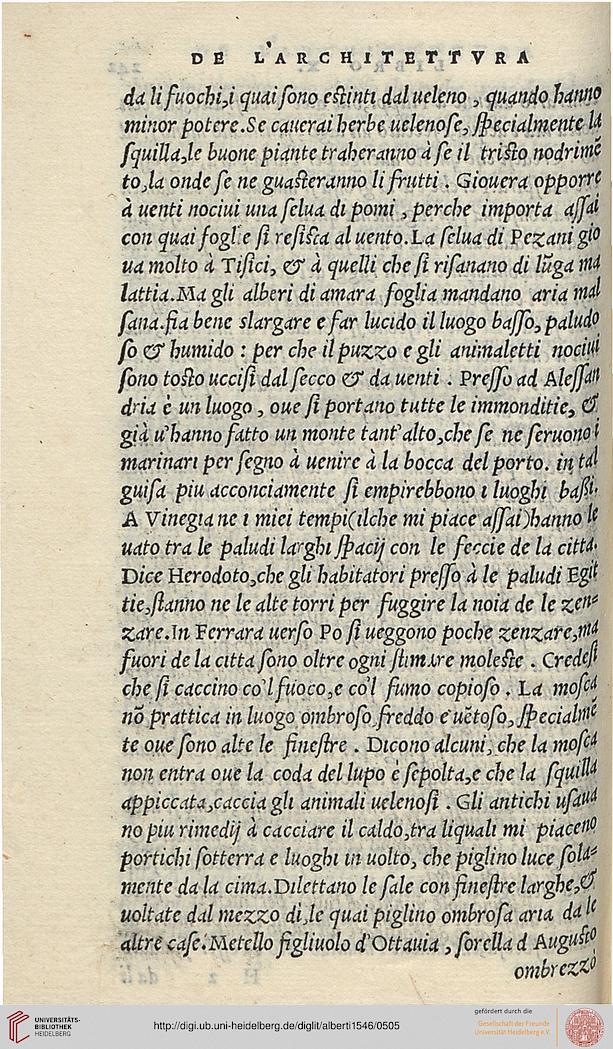 DE L'ARCHITETTVRA
da li fuochi,i quai sono estinti dal ueleno , quando hanno
minor potere.Se cauerai herbe uelenose, specialmente la
squilla,le buone piante traheranno à se il tristo nodrimē
to,la onde se ne guasteranno li frutti . Giouera opporre
à uenti nociui una selua di pomi , perche importa assai
con quai foglie si resista al uento.La selua di Pezani gio
ua molto à Tisici, & à quelli che si risanano di lũga ma
lattia.Ma gli alberi di amara foglia mandano aria mal
sana.fia bene slargare e far lucido il luogo basso, paludo
so & humido : per che il puzzo e gli animaletti nociui
sono tosto uccisi dal secco & da uenti . Presso ad Alessan
dria è un luogo , oue si portano tutte le immonditie, &
già u'hanno fatto un monte tant'alto,che se ne seruono i
marinari per segno à uenire à la bocca del porto. in tal
guisa piu acconciamente si empirebbono i luoghi bassi.
A Vinegia ne i miei tempi(ilche mi piace assai)hanno le
uato tra le paludi larghi spacij con le feccie de la citta.
Dice Herodoto,che gli habitatori presso à le paludi Egit
tie,stanno ne le alte torri per fuggire la noia de le zen=
zare.In Ferrara uerso Po si ueggono poche zenzare,ma
fuori de la citta sono oltre ogni stimare moleste . Credesi
che si caccino co'l fuoco,e co'l fumo copioso . La mosca
nō prattica in luogo ombroso freddo e uētoso, specialmē
te oue sono alte le finestre . Dicono alcuni, che la mosca
non entra oue la coda del lupo è sepolta,e che la squilla
appiccata,caccia gli animali uelenosi . Gli antichi usaua
no piu rimedij à cacciare il caldo,tra liquali mi piaceno
portichi sotterra e luoghi in uolto, che piglino luce sola=
mente da la cima.Dilettano le sale con finestre larghe,&
uoltate dal mezzo di,le quai piglino ombrosa aria da le
altre case.Metello figliuolo d'Ottauia , sorella d Augusto
ombrezzò
UNIVERSITÄTS-
BIBLIOTHEK
HEIDELBERG
http://digi.ub.uni-heidelberg.de/diglit/alberti1546/0505
gefördert durch die
Gesellschaft der Freunde
Universität Heidelberg e.V.